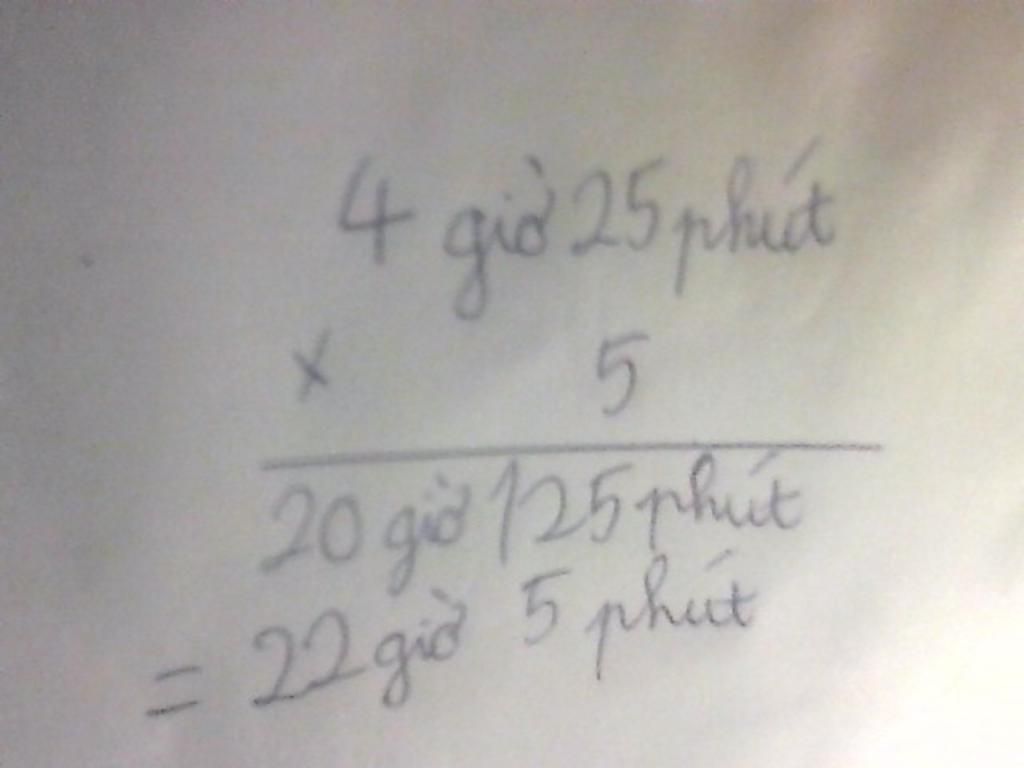 4 giờ 25 phút
x 5
20 giờ 125 phút
= 22 giờ 5 phút